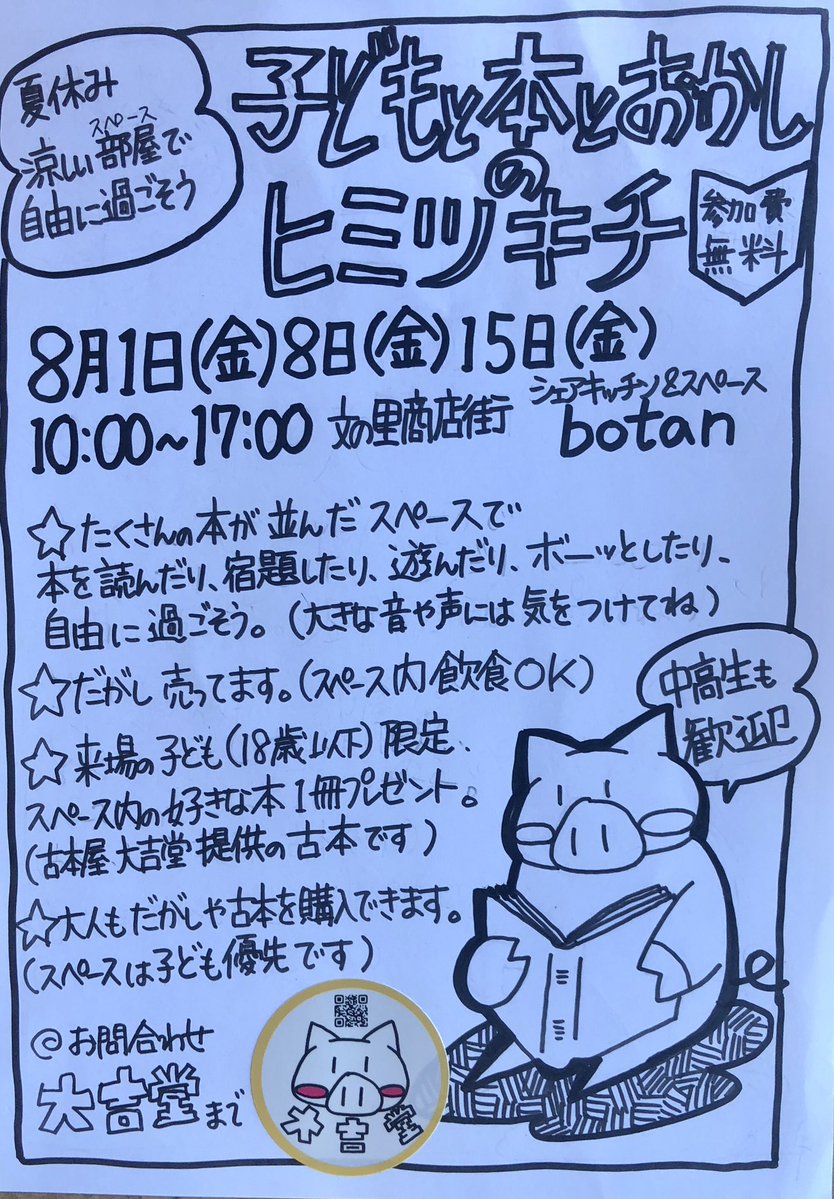 夏休み
涼しい部屋で
スペース
自由に過ごそう
子どもと本とおかし
の
ヒミツキチ
参加費
無料
8月1日(金)8日(金)15日(金)
10:00~17:00 文の里商店街
シェアキッチン&スペース
botan
☆たくさんの本が並んだスペースで
本を読んだり、宿題したり、遊んだり、ボーッとしたり、
自由に過ごそう。(大きな音や声には気をつけてね)
☆だがし売ってます。(スペース内飲食OK)
中高生も
歓迎
☆来場の子ども(18歳以下)限定、
スペース内の好きな本1冊プレゼント。
(古本屋大吉堂提供の古本です)
☆大人もだがしや古本を購入できます。
(スペースは子ども優先です)
@お問合わせ
大吉堂まで
大吉堂